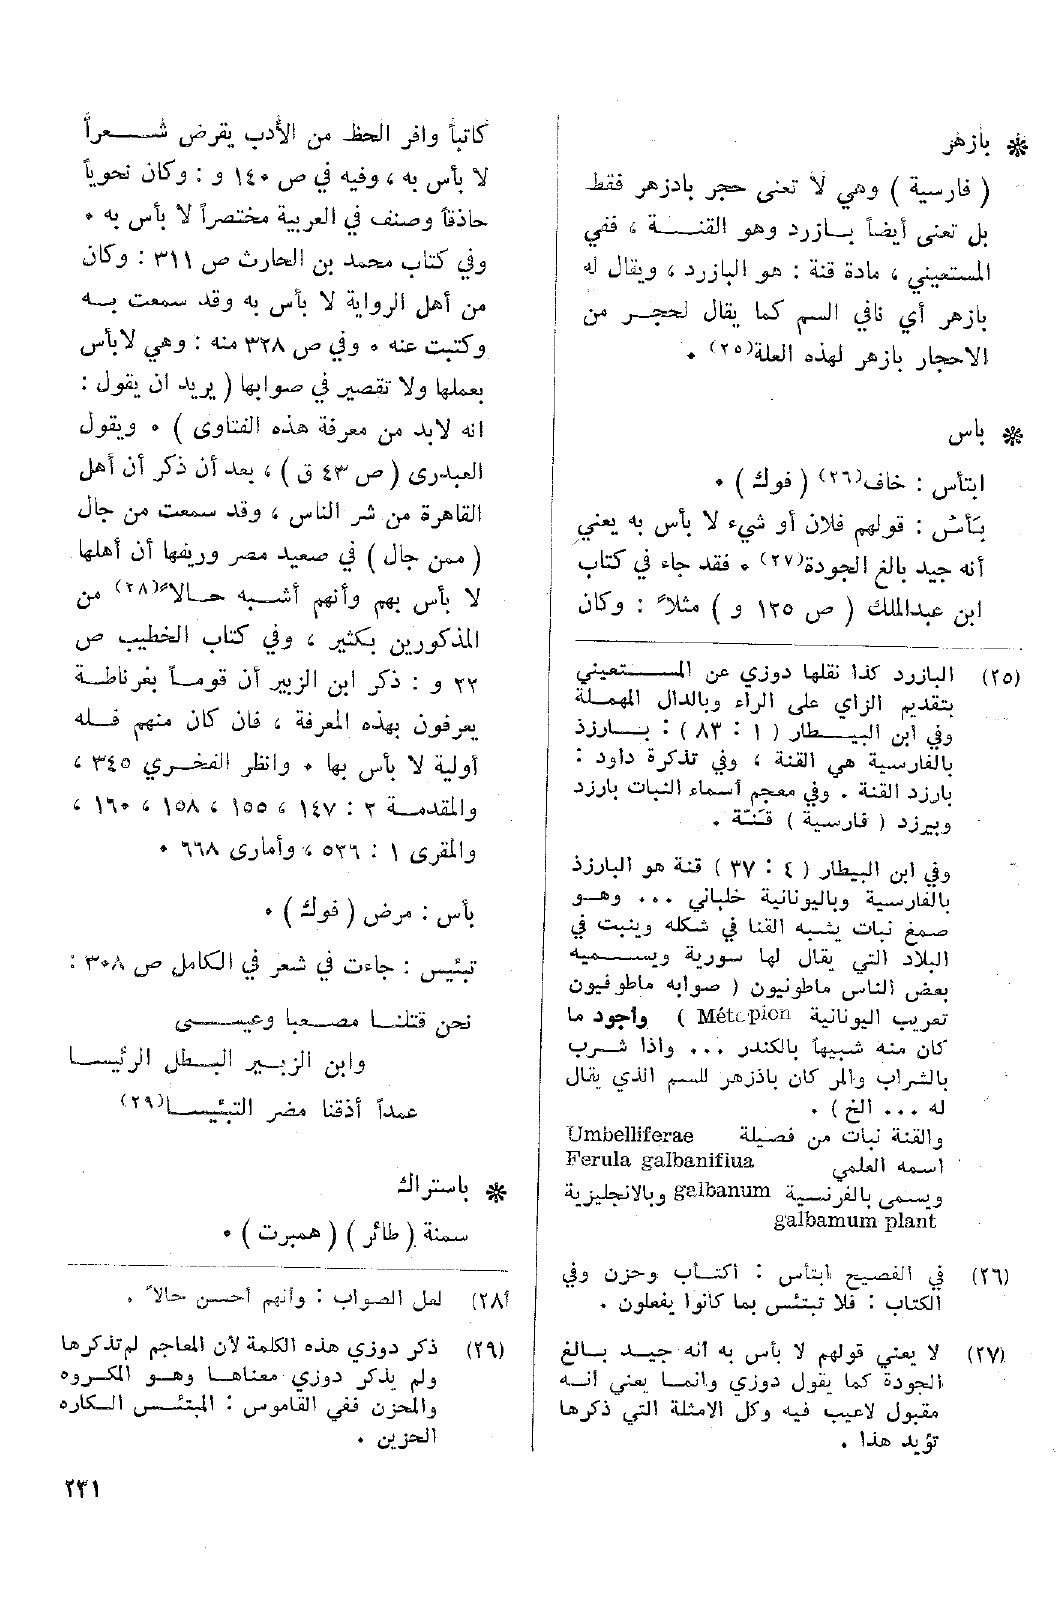 ❋ بازهر
( فارسية ) وهي لا تعني حجر بادزهر فقط
بل تعنى أيضاً بازرد وهو القنة ، ففي
المستعيني ، مادة قنة : هو البازرد ، ويقال له
بازهر أي نافي السم كما يقال لحجر من
الاحجار بازهر لهذه العلة(٢٥) ٠
❋ باس
ابتأس : خاف(٢٦) ( فوك ) ٠
بَأسْ : قولهم فلان أو شيء لا بأس به يعني
أنه جيد بالغ الجودة(٢٧) ٠ فقد جاء في كتاب
ابن عبدالملك ( ص ١٢٥ و ) مثلاً : وكان
(٢٥) البازرد كذا نقلها دوزي عن المستعيني
بتقديم الزاي على الراء وبالدال المهملة
وفي ابن البيطار ( ١ : ٨٣ ) : بارزذ
بالفارسية هي القنة ، وفي تذكرة داود :
بارزد القنة . وفي معجم أسماء النبات بارزد
وبيرزد ( فارسية ) قنّة .
وفي ابن البيطار ( ٤ : ٣٧ ) قنة هو البارزذ
بالفارسية وباليونانية خلباني ... وهو
صمغ نبات يشبه القنا في شكله وينبت في
البلاد التي يقال لها سورية ويسميه
بعض الناس ماطونيون ( صوابه ماطوفيون
تعريب اليونانية Métopion ) وأجود ما
كان منه شبيهاً بالكندر ... واذا شرب
بالشراب والمر كان باذزهر للسم الذي يقال
له ... الخ ) .
والقنة نبات من فصيلة Umbelliferae
اسمه العلمي Ferula galbanifiua
ويسمى بالفرنسية galbanum وبالانجليزية
galbamum plant
(٢٦) في الفصيح ابتأس : اكتأب وحزن وفي
الكتاب : فلا تبتئس بما كانوا يفعلون .
(٢٧) لا يعني قولهم لا بأس به أنه جيد بالغ
الجودة كما يقول دوزي وانما يعني أنه
مقبول لاعيب فيه وكل الامثلة التي ذكرها
تؤيد هذا .
كاتباً وافر الحظ من الأدب يقرض شعراً
لا بأس به ، وفيه في ص ١٤٠ و : وكان نحوياً
حاذقاً وصنف في العربية مختصراً لا بأس به ٠
وفي كتاب محمد بن الحارث ص ٣١١ : وكان
من أهل الرواية لا بأس به وقد سمعت به
وكتبت عنه ٠ وفي ص ٣٢٨ منه : وهي لابأس
بعملها ولا تقصير في صوابها ( يريد ان يقول :
انه لابد من معرفة هذه الفتاوى ) ٠ ويقول
العبدرى ( ص ٤٣ ق ) ، بعد أن ذكر أن أهل
القاهرة من شر الناس ، وقد سمعت من جال
( ممن جال ) في صعيد مصر وريفها أن أهلها
لا بأس بهم وأنهم أشبه حالاً(٢٨) من
المذكورين بكثير ، وفي كتاب الخطيب ص
٢٢ و : ذكر ابن الزبير أن قوماً بغرناطة
يعرفون بهذه المعرفة ، فان كان منهم فله
أولية لا بأس بها ٠ وانظر الفخري ٣٤٥ ،
والمقدمة ٢ : ١٤٧ ، ١٥٥ ، ١٥٨ ، ١٦٠ ،
والمقرى ١ : ٥٢٦ ، وأمارى ٦٦٨ ٠
بأس : مرض ( فوك ) ٠
تبئيس : جاءت في شعر في الكامل ص ٣٠٨ :
نحن قتلنا مصعبا وعيسى
وابن الزبير البطل الرئيسا
عمداً أذقنا مضر التبئيسا(٢٩)
❋ باستراك
سمنة ( طائر ) ( همبرت ) ٠
(٢٨) لعل الصواب : وأنهم أحسن حالاً .
(٢٩) ذكر دوزي هذه الكلمة لأن المعاجم لم تذكرها
ولم يذكر دوزي معناها وهو المكروه
والحزن ففي القاموس : المبتئس الكاره
الحزين .
٢٣١